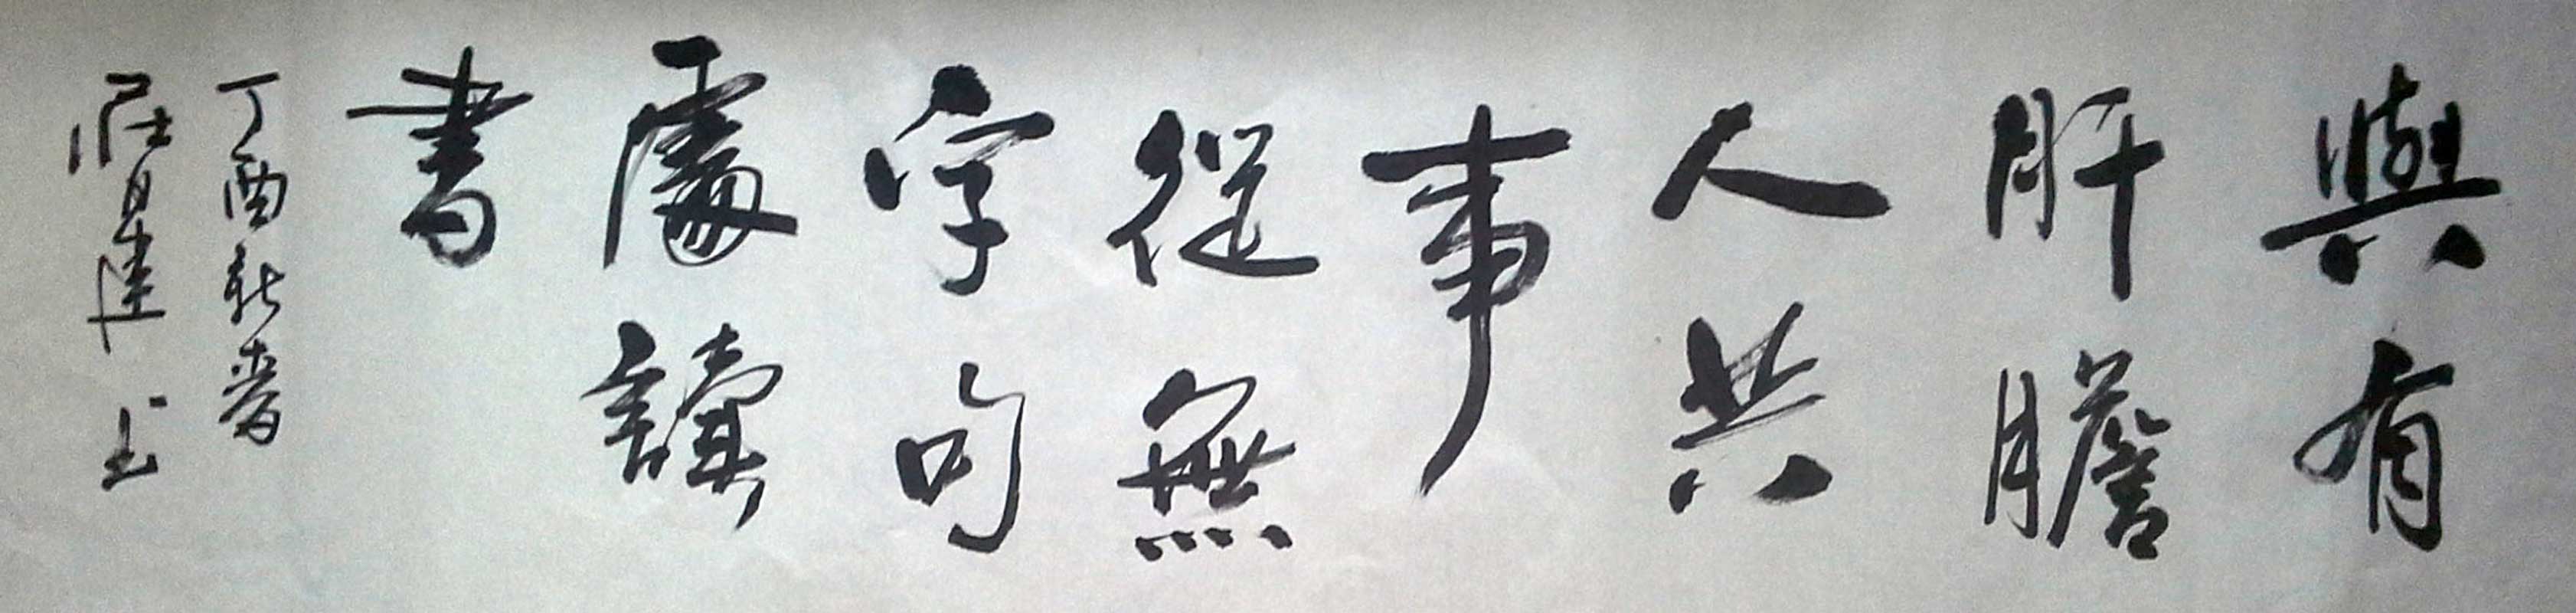 與有
肝膽
人共
事
從無
字句
處讀
書
丁酉新春
莊建書